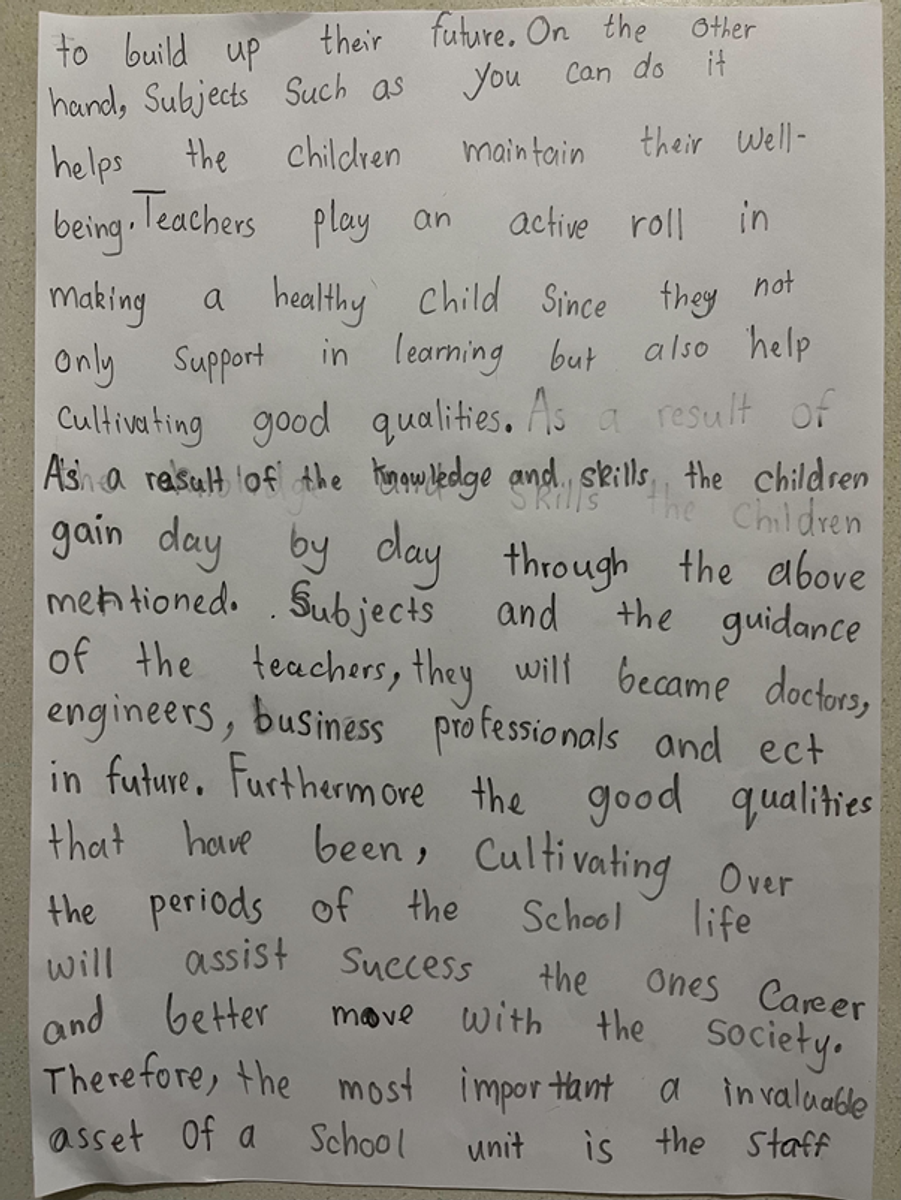 to build up their future. On the other
hand, Subjects Such as you can do it
helps the children maintain their well-
being. Teachers play an active roll in
making a healthy child Since they not
only Support in learning but also help
Cultivating good qualities. As a result of
As a result of the knowledge and skills the children
skills the children
gain day by day through the above
mentioned. . Subjects and the guidance
of the teachers, they will became doctors,
engineers, business professionals and ect
in future. Furthermore the good qualities
that have been, Cultivating Over
the periods of the School life
will assist Success the ones Career
and better move with the Society.
Therefore, the most important a invaluable
asset Of a School unit is the Staff